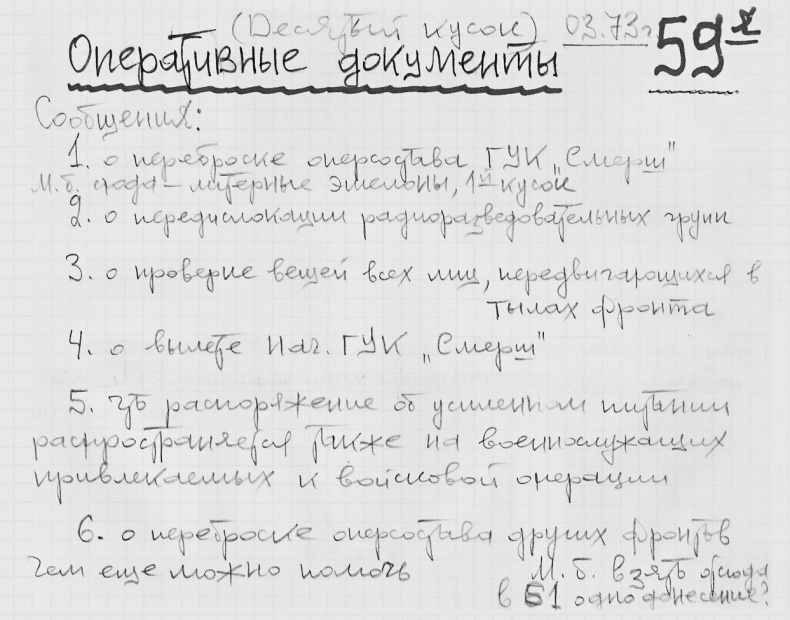 (Десятый кусок) 03.73г 59х
Оперативные документы
Сообщения:
1. о переброске оперсостава ГУК „Смерш"
М.б. сюда – литерные эшелоны, 1й кусок
2. о передислокации радиоразведовательных групп
3. о проверке вещей всех лиц, передвигающихся в
тылах фронта
4. о вылете Нач. ГУК „Смерш"
5. что распоряжение об усиленном питании
распространяется также на военнослужащих
привлекаемых к войсковой операции
6. о переброске оперсостава других фронтов
чем еще можно помочь
М.б. взять отсюда
в 61 одно донесение?